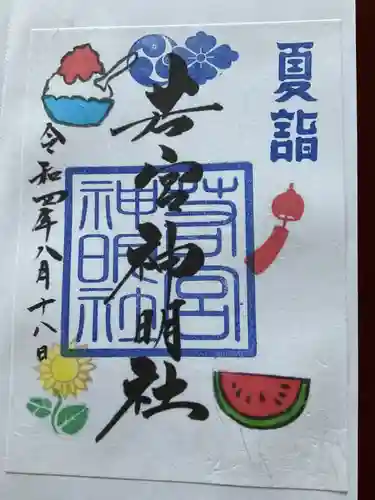 夏詣
若宮神明社
令和四年八月十八日
若宮
神明社